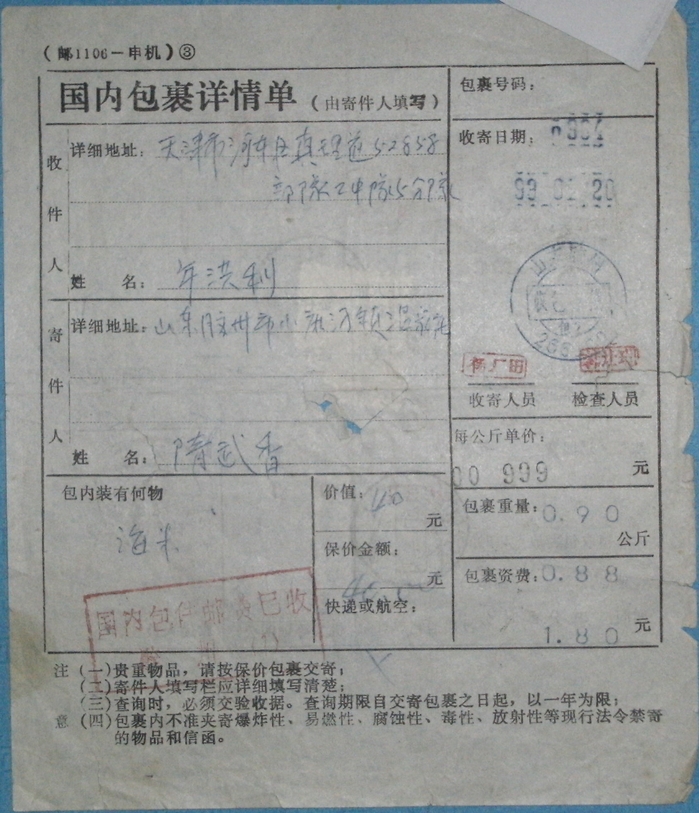 （邮1106－申机）③
国内包裹详情单（由寄件人填写）
包裹号码：
收寄日期：
收件人
详细地址：天津市河东区真理道52858
部队工中队5分队
姓 名：年洪利
寄件人
详细地址：山东胶州市小
姓 名：隋武香
收寄人员
检查人员
每公斤单价：
00 999 元
包内装有何物
海米
价值：40 元
保价金额：
元
快递或航空：
包裹重量：0.90
公斤
包裹资费：0.88
1.80 元
国内包件邮资已收
注意
（一）贵重物品，请按保价包裹交寄；
（二）寄件人填写栏应详细填写清楚；
（三）查询时，必须交验收据。查询期限自交寄包裹之日起，以一年为限；
（四）包裹内不准夹寄爆炸性、易燃性、腐蚀性、毒性、放射性等现行法令禁寄
的物品和信函。